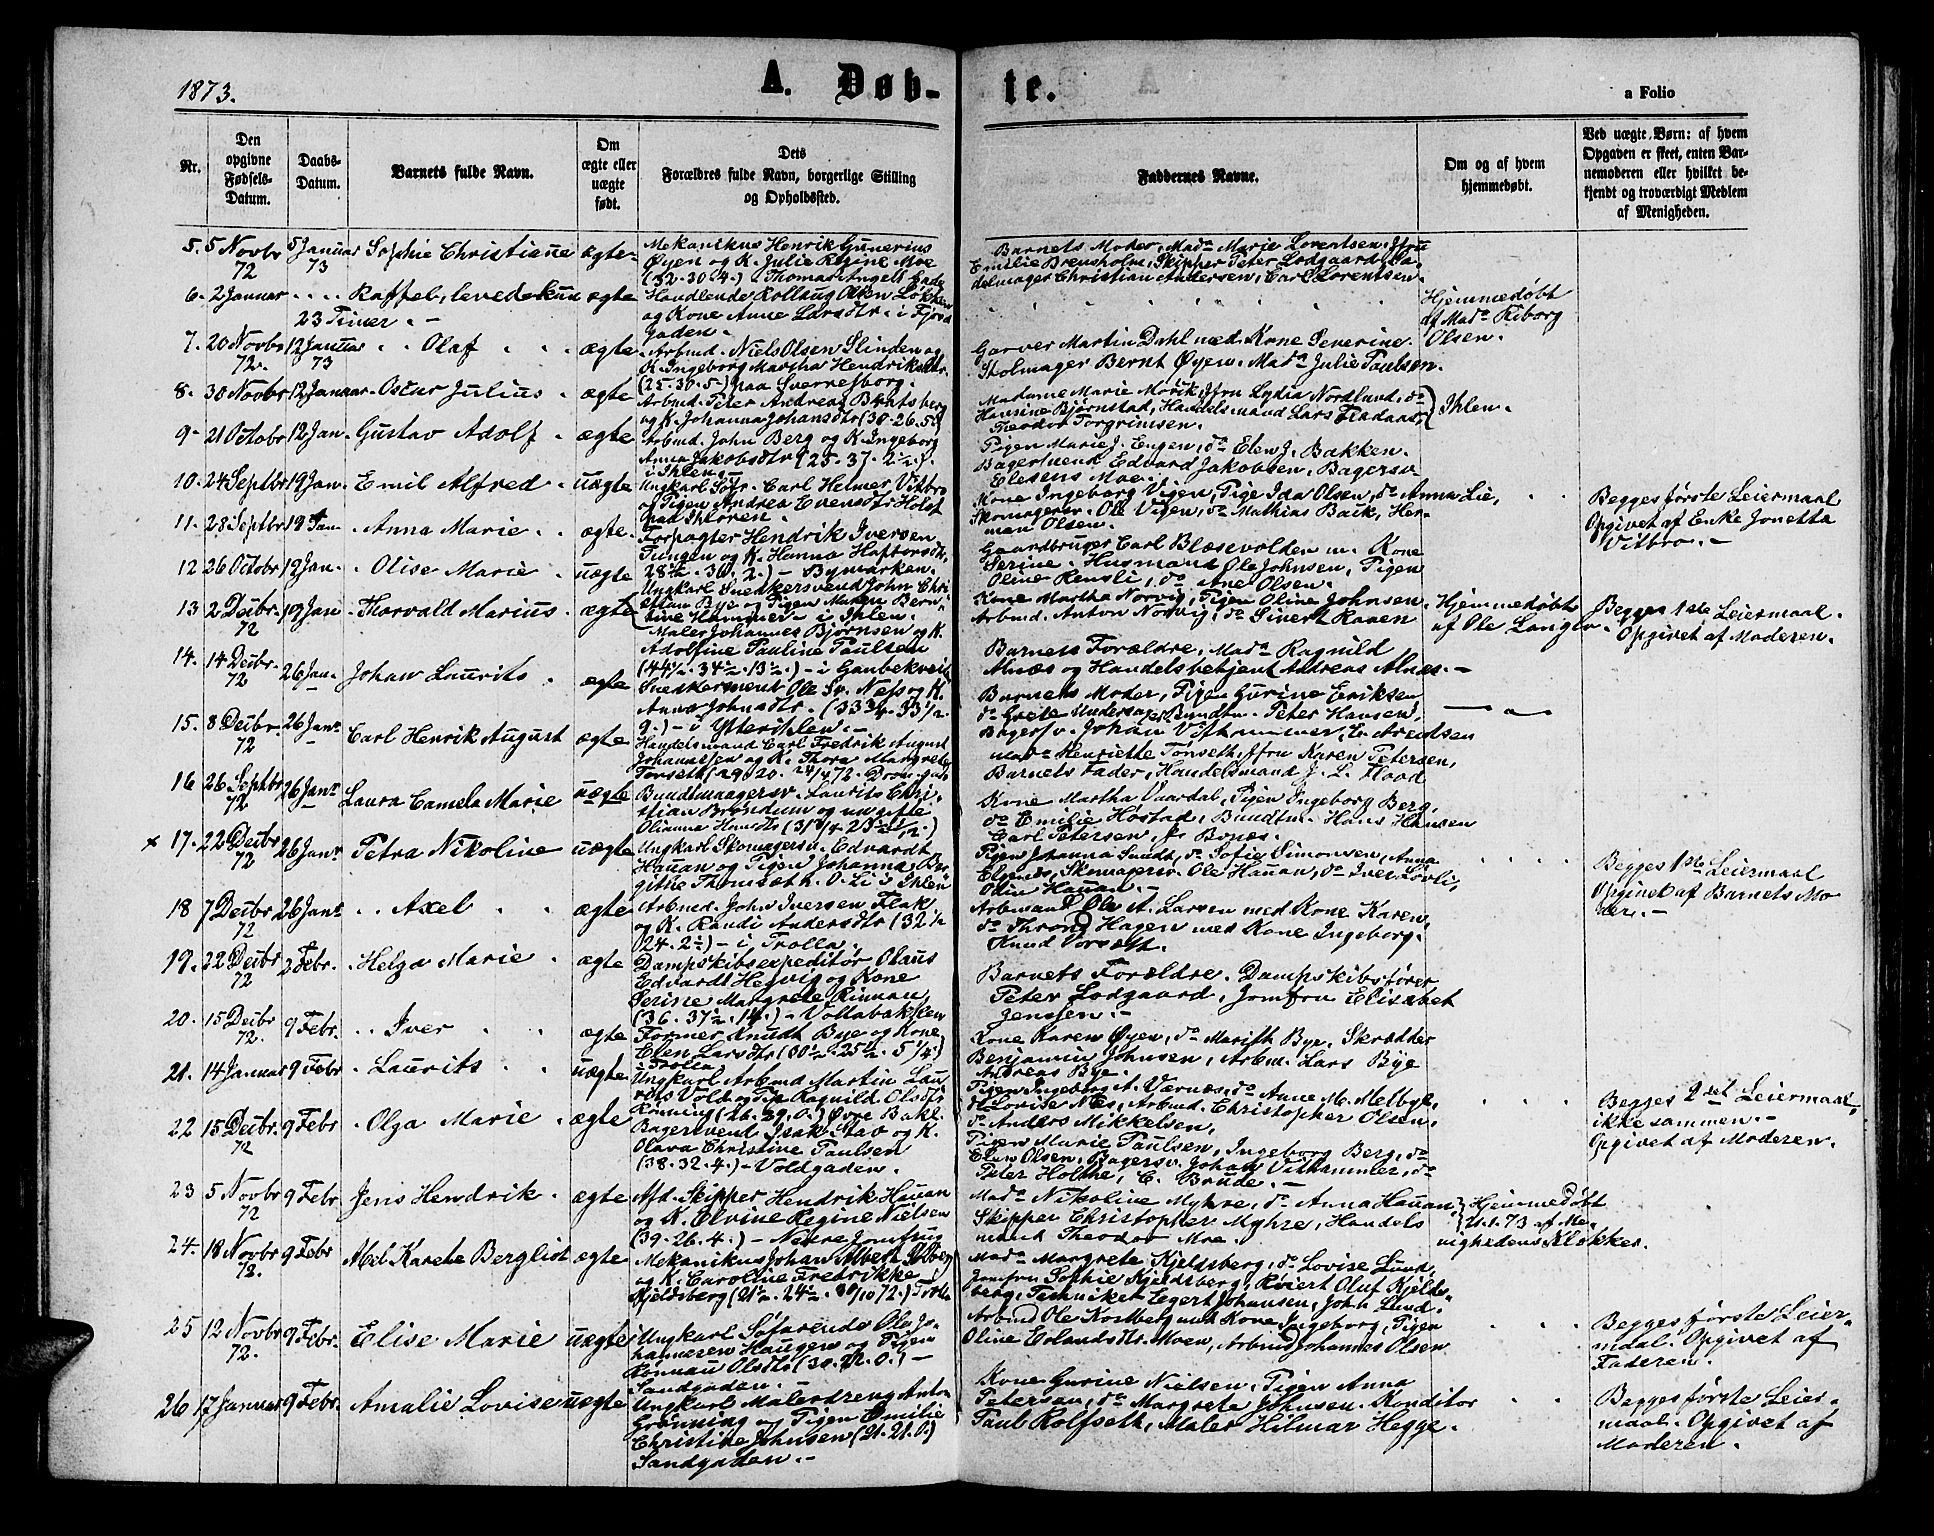 1873.
A. Døb-
te.
a Folio
Nr.
Den opgivne Fødsels-Datum.
Daabs-Datum.
Barnets fulde Navn.
Om ægte eller uægte født.
Dets Forældres fulde Navn, borgerlige Stilling og Opholdssted.
Faddernes Navne.
Om og af hvem hjemmedøbt.
Ved uægte Børn: af hvem Opgaven er skeet, enten Barnemoderen eller hvilket bekjendt og troværdigt Medlem af Menigheden.
5. 5 Novbr 72 5 Januar 73 Sophie Christiane ægte
Mekanikus Henrik Gunerius
Øyen og K. Julie Regine Moe
(32-30-4.) Thomas Angells Gade
Barnets Moder, Mada Marie Lorentsen, Jfru
Emilie Brensholm, Skipper Peter Lodgaard, Sa-
delmager Christian Andersen, Carl Lorentsen.
6. 2 Januar Kaffeb, levede kun 23 Timer. - ægte
Handlende Rollaug Olsen Løkken
og Kone Anne Larsdtr. i Fjord
gaden.
Hjemmedøbt
af Mada Riborg
Olsen.
7. 20 Novbr 72. 12 Januar 73 Olaf ægte
Arbmd. Niels Olsen Slinden og
K. Ingeborg Martha Hendriksdtr.
(25-30.5) paa Sverresborg.
Garver Martin Dahl med Kone Severine.
Stolmager Bernt Øyen. Mada Julie Paulsen.
8. 30 Novbr 12 Januar Oscar Julius ægte
Arbmd. Peter Andreas Berntsberg
og K. Johanna Johansdtr (30-26.5)
Madame Marie Mörik, Jfru Lydia Nordlund, do
Hansine Bjørnstad, Handelsmand Lars Fladaas,
Theodor Torgrimsen.
Ihlen.
9. 21 Octobr 12 Jan. Gustav Adolf ægte
Arbmd. John Berg og K. Ingeborg
Anna Jakobsdtr (25-37. 2½.)
i Ihlen.
Pigen Marie J. Engen, do Elen J. Bakken.
Bagersvend Edvard Jakobsen, Bagersv
Elesens Moe.
10. 24 Septbr 19 Jan. Emil Alfred uægte
Ungkarl Søfr. Carl Heimer Vikbro
og Pigen Andrea Evensdtr Holst
paa Ihloren.
Kone Ingeborg Vigen, Pige Ida Olsen, do Anna Lie,
Skomagersv. Ole Vigen, do Mathias Baik, Her-
man Olsen.
Begges første Leiermaal
Opgivet af Enke Jonetta
Vilbro. -
11. 28 Septbr 19 Jan Anna Marie ægte
Forpagter Hendrik Iversen
Tungen og K. Hanna Haftorsdtr,
28½. 30. 2.) - Bymarken.
Gaardbruger Carl Blæsevolden m. Kone
Serine. Husmand Ole Johnsen, Pigen
Oline Rensli, do Ane Olsen.
12 26 Octobr 19 Jan. Olise Marie uægte
Ungkarl Snedkersvend John Chri
stian Bye og Pigen Maren Bern-
tine Hammer - i Ihlen.
Kone Martha Norvig, Pigen Oline Johnsen
Arbmd. Anton Norvig, do Sivert Raaen
Begges 1ste Leiermaal.
Opgivet af Moderen.
13 2 Decbr 72 19 Jan Thorvald Marius ægte
Maler Johannes Bjørnsen og K.
Adolfine Pauline Paulsen
(44½. 34½. 13½.) - i Gaubekveita
Hjemmedøbt
af Ole Langlo
Barnets Forældre, Mada Ragnild
Alnæs og Handelsbetjent Andreas Alnæs. -
14. 14 Decbr. 72 26 Jan. Johan Laurits ægte
Snedkersvent Ole Sv. Næss og K.
Anna Johnsdtr. (33¾. 33½.
9.) - i Ytter Ihlen. -
Barnets Moder, Pigen Gurine Eriksen
do Grete Undersager, Bundtm. Peter Hansen,
15. 8 Decbr. 72 26 Jan. Carl Henrik August ægte
Handelsmand Carl Fredrik August
Johannesen og K. Thora Margrete
Tonseth (29.20. 24/4 72. Dron. gad
Bagersv. Johan Vithammer, E. Arentsen
Mada Henriette Tønseth, Jfru Karen Petersen,
Barnets Fader, Handelsmand J. L. Flood
16 26 Septbr 72 26 Janr Laura Camela Marie uægte
Bundtmagersv. Laurits Chri-
stian Brøndum og ungifte
Olianna Hansdtr
Kone Martha Vaardal, Pigen Ingeborg Berg,
do Emilie Høstad, Bundtm. Hans Hansen
Carl Petersen, P. Bonæs.
x 17. 22 Decbr 72 26 Janr Petra Nikoline uægte
Ungkarl Skomagersv. Edvardt
Hauan og Pigen Johanna Bir
gitte Thomsæth. O. Li i Ihlen
Pigen Johanna Smidt, do Sofie Simonsen, Anna
Elgenes, Skomagersv. Ole Hauan, do Iver Løvli,
Odin Hauan. -
Begges 1ste Leiermaal
Opgivet af Barnets Mo
der. -
18 7 Decbr 72 26 Janr Axel ægte
Arbmd. John Iversen Flak
og K. Randi Andersdtr (32½
24. 2½) - i Trolla.
Arbmand Ole A. Larsen med Kone Karen,
do Thrond Hagen med Kone Ingeborg.
Knud Vorsett.
19. 22 Decbr 72 2 Febr. Helga Marie ægte
Dampskibsexpeditør Olaus
Edvardt Hegvig og Kone
Serine Margrete Rinnan,
(36. 37½. 14.) - Vollabakken
Barnets Forældre. Dampskibsfører
Peter Lodgaard, Jomfru Elisabet
Jenssen. -
20. 15 Decbr 72. 9 Febr. Iver ægte
Former Knudt Bye og Kone
Elen Larsdtr (30½. 25½. 5¼.)
i Trolla
Kone Karen Øyen, do Marith Bye, Skrædder
Benjamin Johnsen, Arbm. Lars Bye
Andreas Bye.
21. 14 Januar 9 Febr Laurits uægte
Ungkarl Arbmd Martin Lau
rits Vold og Pige Ragnild Olsdtr
Rønning (26. 29. 0.) Øvre Bakl.
Pigen Ingeborg A. Værnes, do Anne M. Melbye,
do Lovise Næs, Arbmd. Christopher Olsen,
do Anders Mikkelsen,
Begges 2det Leiermaal,
ikke sammen. -
Opgivet af Moderen.
22 15 Decbr. 72 9 Febr Olga Marie ægte
Bagersvent Isak Stav og K.
Olava Christine Paulsen
(38. 32. 4.) - Voldgaden.
Pigen Marie Paulsen, Ingeborg Berg, do
Elen Olsen, Bagersv. Johan Vithammer, do
Peter Holthe, C. Brude. -
23 5 Novbr 72 9 Febr Jens Hendrik. ægte
Afd. Skipper Hendrik Hauan
og K. Elvine Regine Nielsen
(39. 26. 4.) - Nedre Jomfrug
Mada Nikoline Myhre, do Anna Hauan,
Skipper Christopher Myhre, Handels
mand Theodor Moe.
Hjemmedøbt
21-1-73 af Me-
nighedens Klokker.
24. 18 Novbr 72. 9 Febr Mel. Karete Bergliot ægte
Mekanikus Johan Albert
og K. Caroline Fredrikke
Kjeldsberg (21½. 24½. 72.) Trolla
Mada Margrete Kjeldsberg, do Lovise Lund,
Jomfru Sophie Kjeldsberg, Røiert Oluf Kjelds-
berg, Tekniker Egert Johansen, John Lund.
25 12 Novbr 72. 9 Febr. Elise Marie uægte
Ungkarl Søfarende Ole Jo-
hannesen Haugen og Pigen
Rønnau Olsdtr (30. 22. 0.) -
Sandgaden. -
Arbmd Ole Kostberg med Kone Ingeborg, Pigen
Oline Erlandsdtr. Moen, Arbmd Johannes Olsen
Begges første Leier-
maal. Opgivet af
Faderen.
26 17 Januar 9 Febr. Amalie Lovise uægte
Ungkarl Malerdreng Anton
Grønning og Pigen Emilie
Christine Johnsen (21. 21. 0.)
Sandgaden. -
Kone Gurine Nielsen. Pigen Anna
Petersen, do Margrete Johnsen. Konditor
Paul Rolfseth, Maler Hilmar Hegge.
Begges første Leier-
maal. Opgivet af
Moderen.